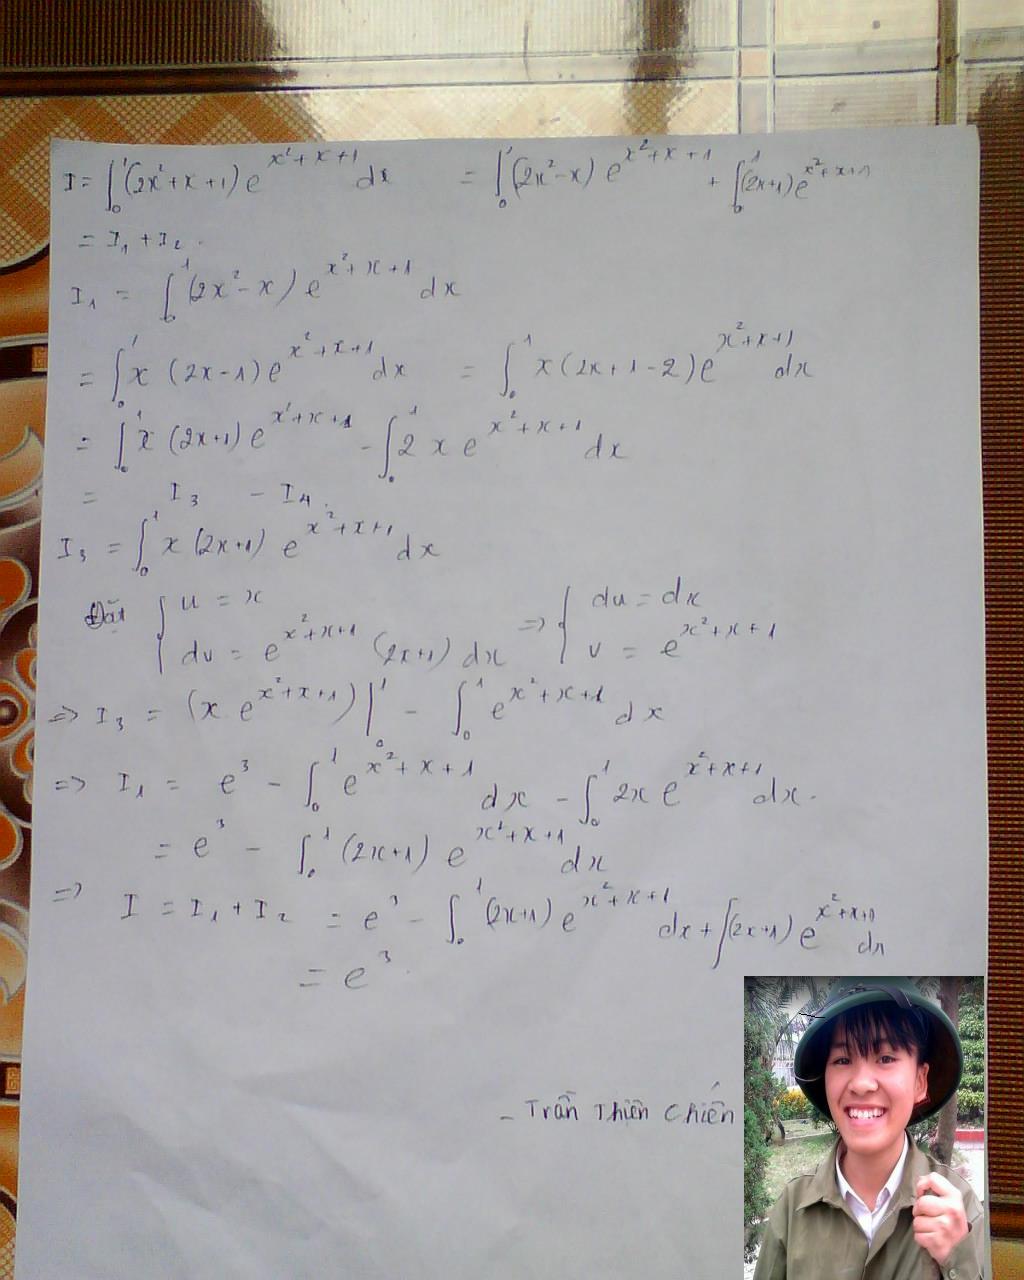 I = ∫₀¹ (2x²+x+1) e^{x²+x+1} dx = ∫₀¹ (2x²-x) e^{x²+x+1} + ∫₀¹ (2x+1) e^{x²+x+1}
= I₁ + I₂.
I₁ = ∫₀¹ (2x²-x) e^{x²+x+1} dx
= ∫₀¹ x (2x-1) e^{x²+x+1} dx = ∫₀¹ x(2x+1-2) e^{x²+x+1} dx
= ∫₀¹ x (2x+1) e^{x²+x+1} - ∫₀¹ 2 x e^{x²+x+1} dx
= I₃ - I₄.
I₃ = ∫₀¹ x (2x+1) e^{x²+x+1} dx
Đặt { u = x ; dv = e^{x²+x+1} (2x+1) dx => { du = dx ; v = e^{x²+x+1}
=> I₃ = (x e^{x²+x+1}) |₀¹ - ∫₀¹ e^{x²+x+1} dx
=> I₁ = e³ - ∫₀¹ e^{x²+x+1} dx - ∫₀¹ 2x e^{x²+x+1} dx.
= e³ - ∫₀¹ (2x+1) e^{x²+x+1} dx
=> I = I₁ + I₂ = e³ - ∫₀¹ (2x+1) e^{x²+x+1} dx + ∫(2x+1) e^{x²+x+1} dx
= e³.
- Trần Thiên Chiến